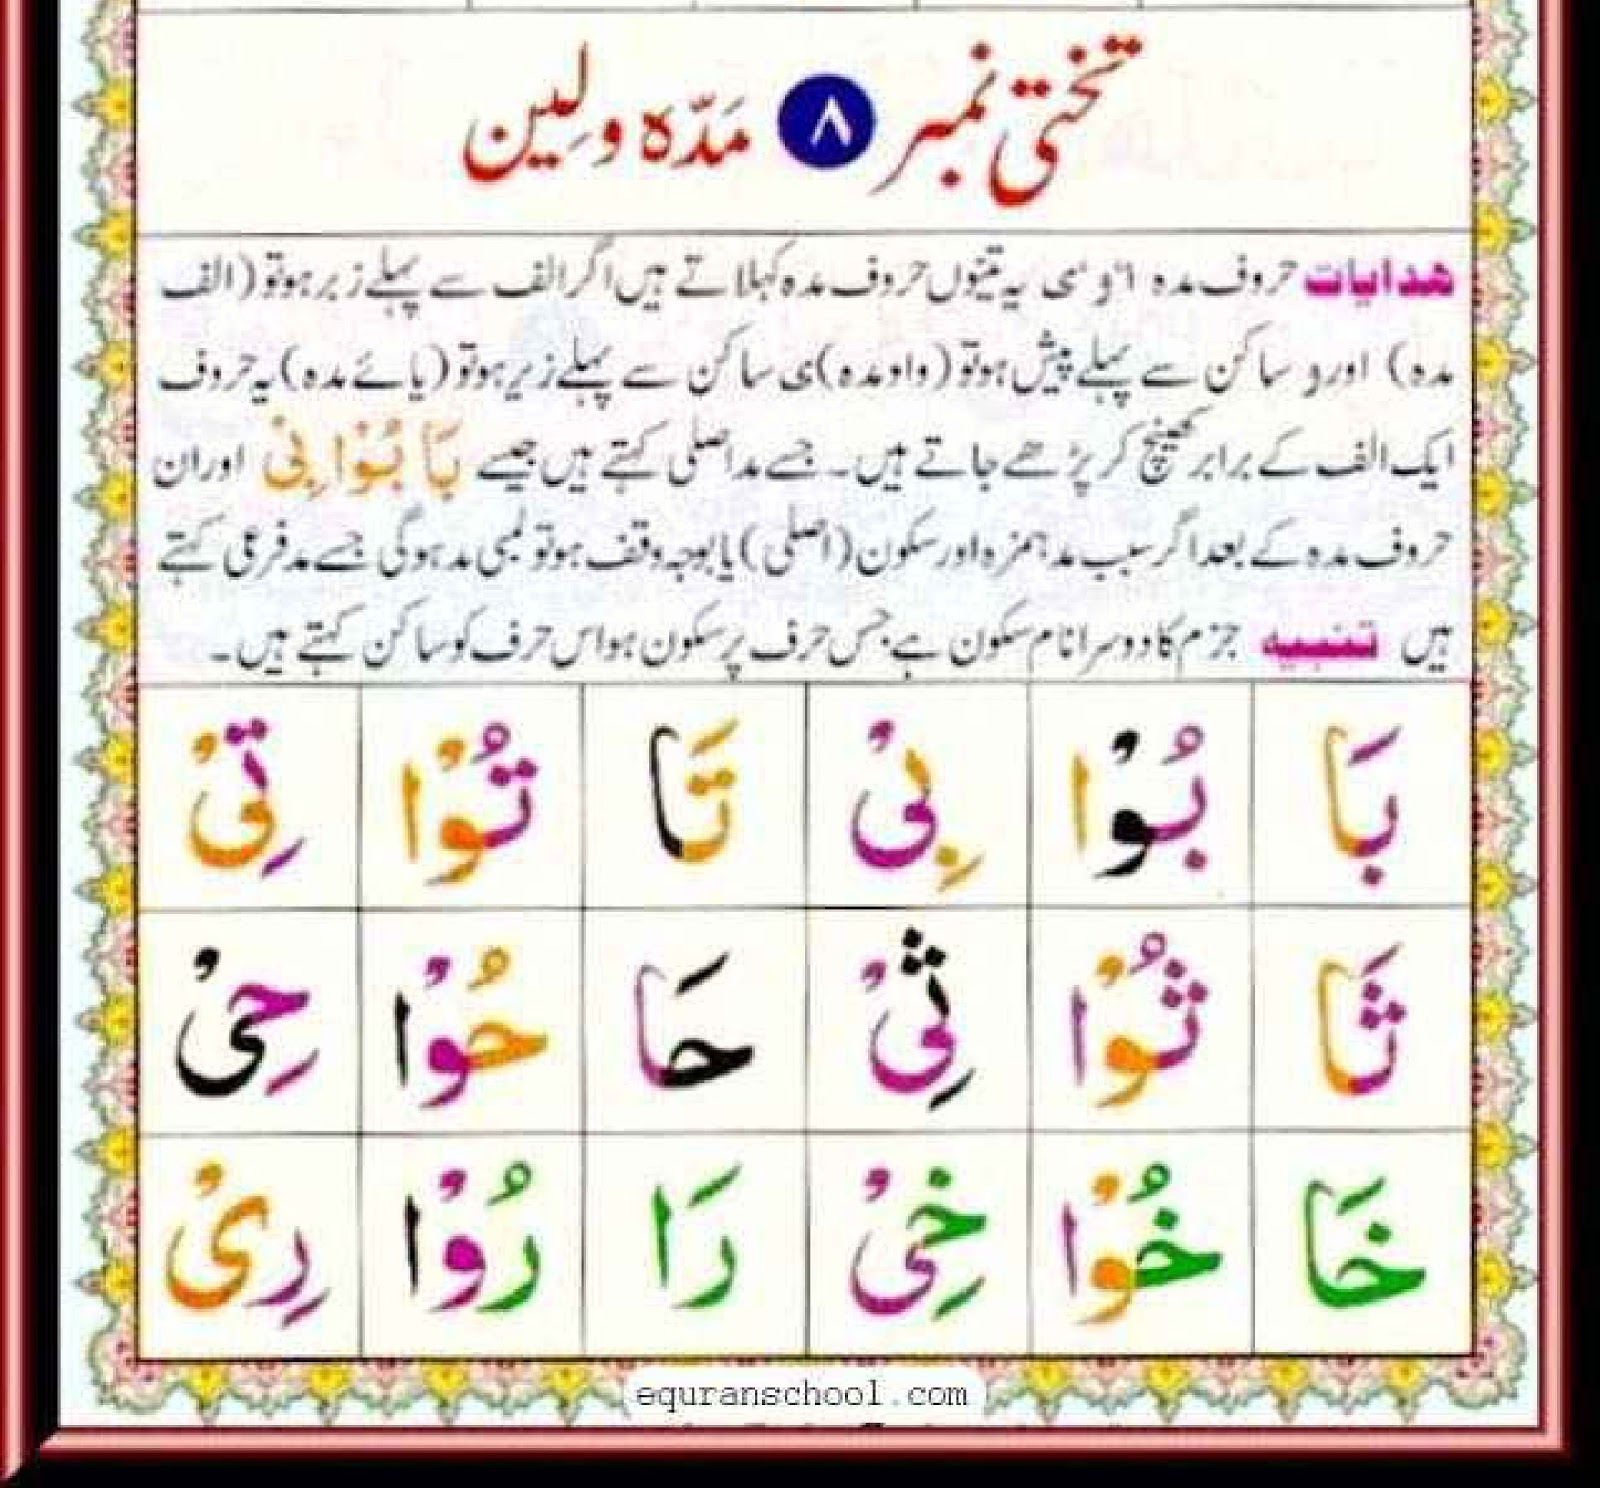 تختی نمبر ۸ مَدّہ ولِین
ھدایات حروف مدہ ا و ی یہ تینوں حروف مدہ کہلاتے ہیں اگر الف سے پہلے زبر ہو تو (الف
مدہ) اور و ساکن سے پہلے پیش ہو تو (واو مدہ) ی ساکن سے پہلے زیر ہو تو (یائے مدہ) یہ حروف
ایک الف کے برابر کھینچ کر پڑھے جاتے ہیں۔ جسے مد اصلی کہتے ہیں جیسے بَا بُوْا بِیْ اور ان
حروف مدہ کے بعد اگر سبب مد ہمزہ اور سکون (اصلی) یا بوجہ وقف ہو تو لمبی مد ہوگی جسے مد فرعی کہتے
ہیں تنبیہ جزم کا دوسرا نام سکون ہے، جس حرف پر سکون ہو اس حرف کو ساکن کہتے ہیں۔
بَا بُوْا بِیْ تَا تُوْا تِیْ
ثَا ثُوْا ثِیْ حَا حُوْا حِیْ
خَا خُوْا خِیْ رَا رُوْا رِیْ
equranschool.com